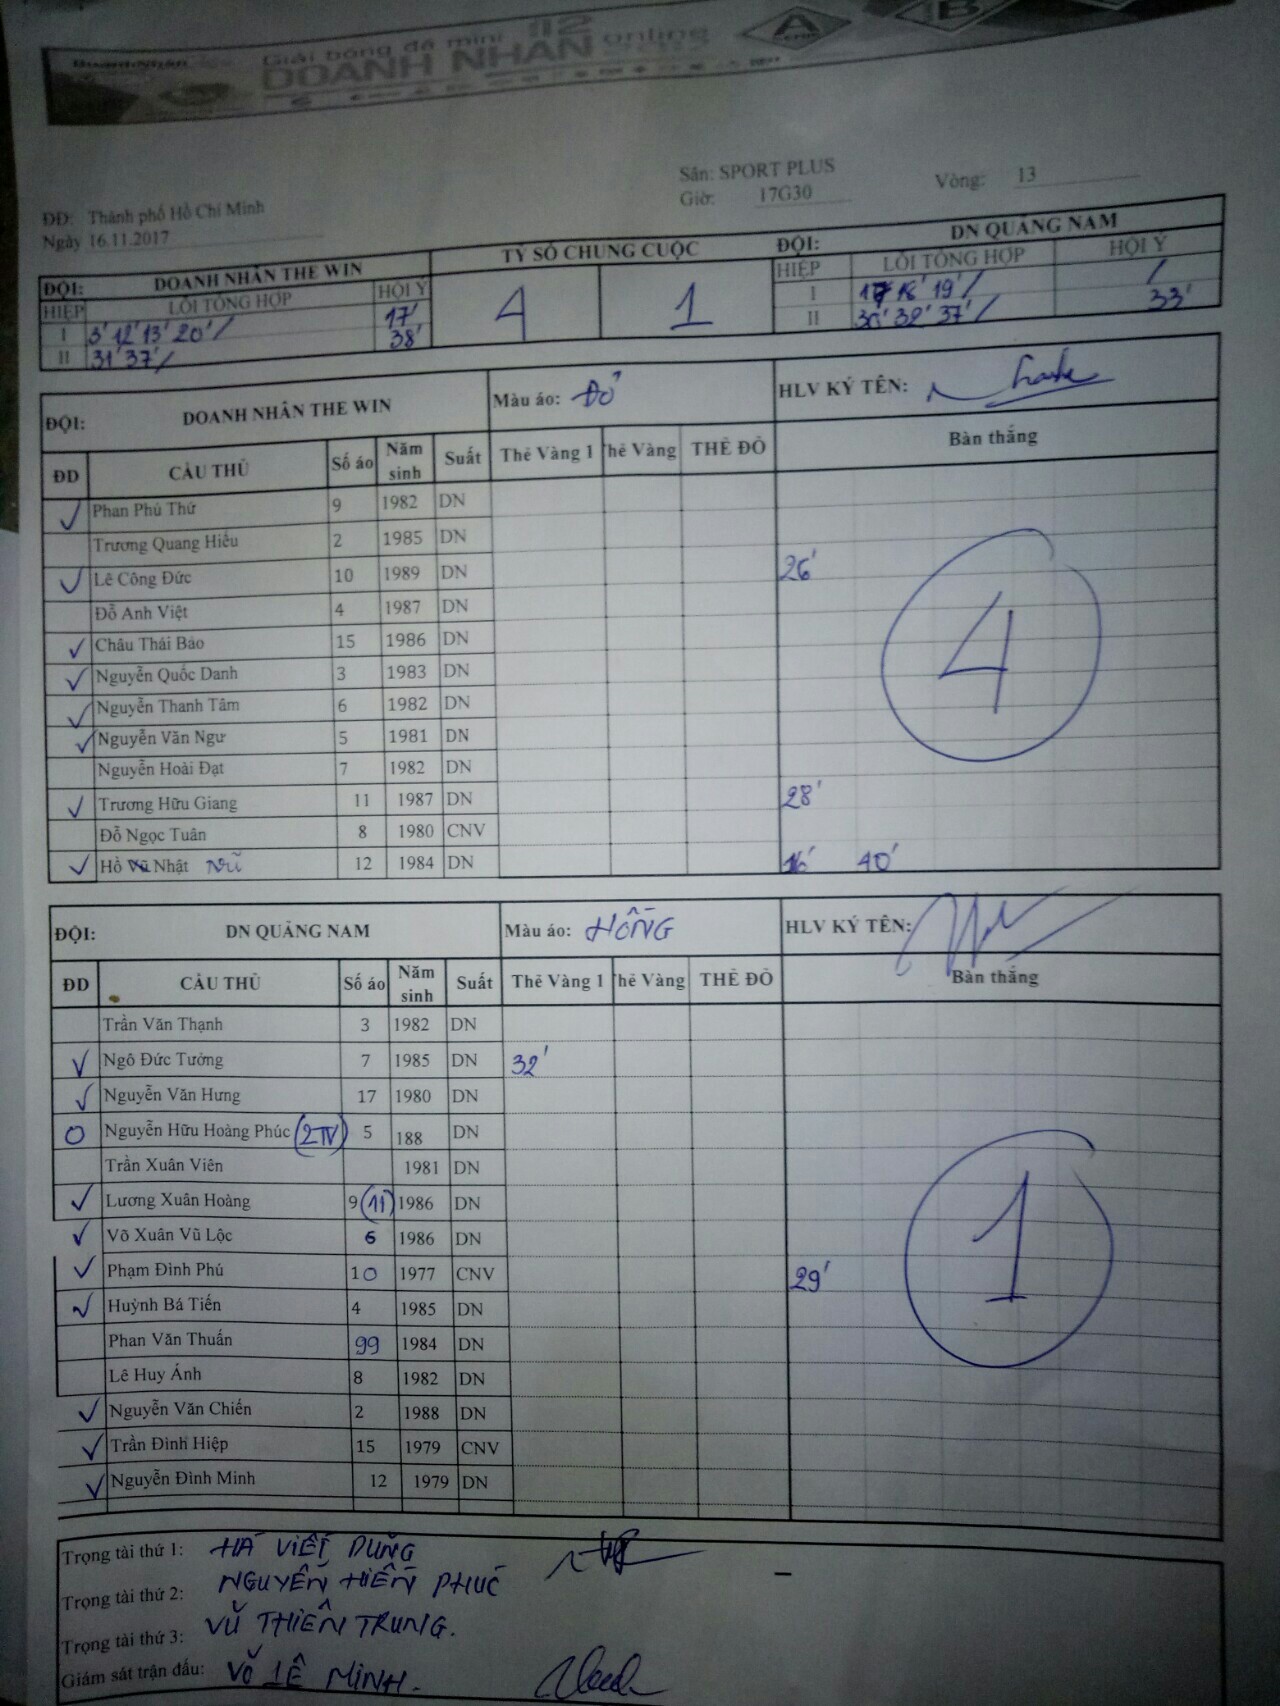 Giải bóng đá mini
DOANH NHÂN online
A
B
Sân: SPORT PLUS
Giờ: 17G30
Vòng: 13
ĐĐ: Thành phố Hồ Chí Minh
Ngày 16.11.2017
ĐỘI: DOANH NHÂN THE WIN TỶ SỐ CHUNG CUỘC ĐỘI: DN QUẢNG NAM
HIỆP LỖI TỔNG HỢP HỘI Ý 4 1 HIỆP LỖI TỔNG HỢP HỘI Ý
I 3' 12' 13' 20' / 17' I 18' 19' / /
II 31' 37' / 38' II 32' 37' / 33'
ĐỘI: DOANH NHÂN THE WIN Màu áo: ĐỎ HLV KÝ TÊN:
ĐD CẦU THỦ Số áo Năm sinh Suất Thẻ Vàng 1 Thẻ Vàng THẺ ĐỎ Bàn thắng
✓ Phan Phú Thứ 9 1982 DN
Trương Quang Hiếu 2 1985 DN
✓ Lê Công Đức 10 1989 DN 26'
Đỗ Anh Việt 4 1987 DN
✓ Châu Thái Bảo 15 1986 DN
✓ Nguyễn Quốc Danh 3 1983 DN
4
✓ Nguyễn Thanh Tâm 6 1982 DN
✓ Nguyễn Văn Ngư 5 1981 DN
Nguyễn Hoài Đạt 7 1982 DN
✓ Trương Hữu Giang 11 1987 DN 28'
Đỗ Ngọc Tuân 8 1980 CNV
✓ Hồ Nhật 12 1984 DN 16' 40'
ĐỘI: DN QUẢNG NAM Màu áo: HỒNG HLV KÝ TÊN:
ĐD CẦU THỦ Số áo Năm sinh Suất Thẻ Vàng 1 Thẻ Vàng THẺ ĐỎ Bàn thắng
Trần Văn Thạnh 3 1982 DN
✓ Ngô Đức Tưởng 7 1985 DN 32'
✓ Nguyễn Văn Hưng 17 1980 DN
O Nguyễn Hữu Hoàng Phúc (2TV) 5 188 DN
Trần Xuân Viên 1981 DN
✓ Lương Xuân Hoàng 9 (11) 1986 DN
✓ Võ Xuân Vũ Lộc 6 1986 DN
1
✓ Phạm Đình Phú 10 1977 CNV 29'
✓ Huỳnh Bá Tiến 4 1985 DN
Phan Văn Thuấn 99 1984 DN
Lê Huy Ánh 8 1982 DN
✓ Nguyễn Văn Chiến 2 1988 DN
✓ Trần Đình Hiệp 15 1979 CNV
✓ Nguyễn Đình Minh 12 1979 DN
Trọng tài thứ 1: HÀ VIẾT DŨNG
Trọng tài thứ 2: NGUYỄN HIỀN PHÚC
Trọng tài thứ 3: VŨ THIÊN TRUNG.
Giám sát trận đấu: VÕ LÊ MINH.